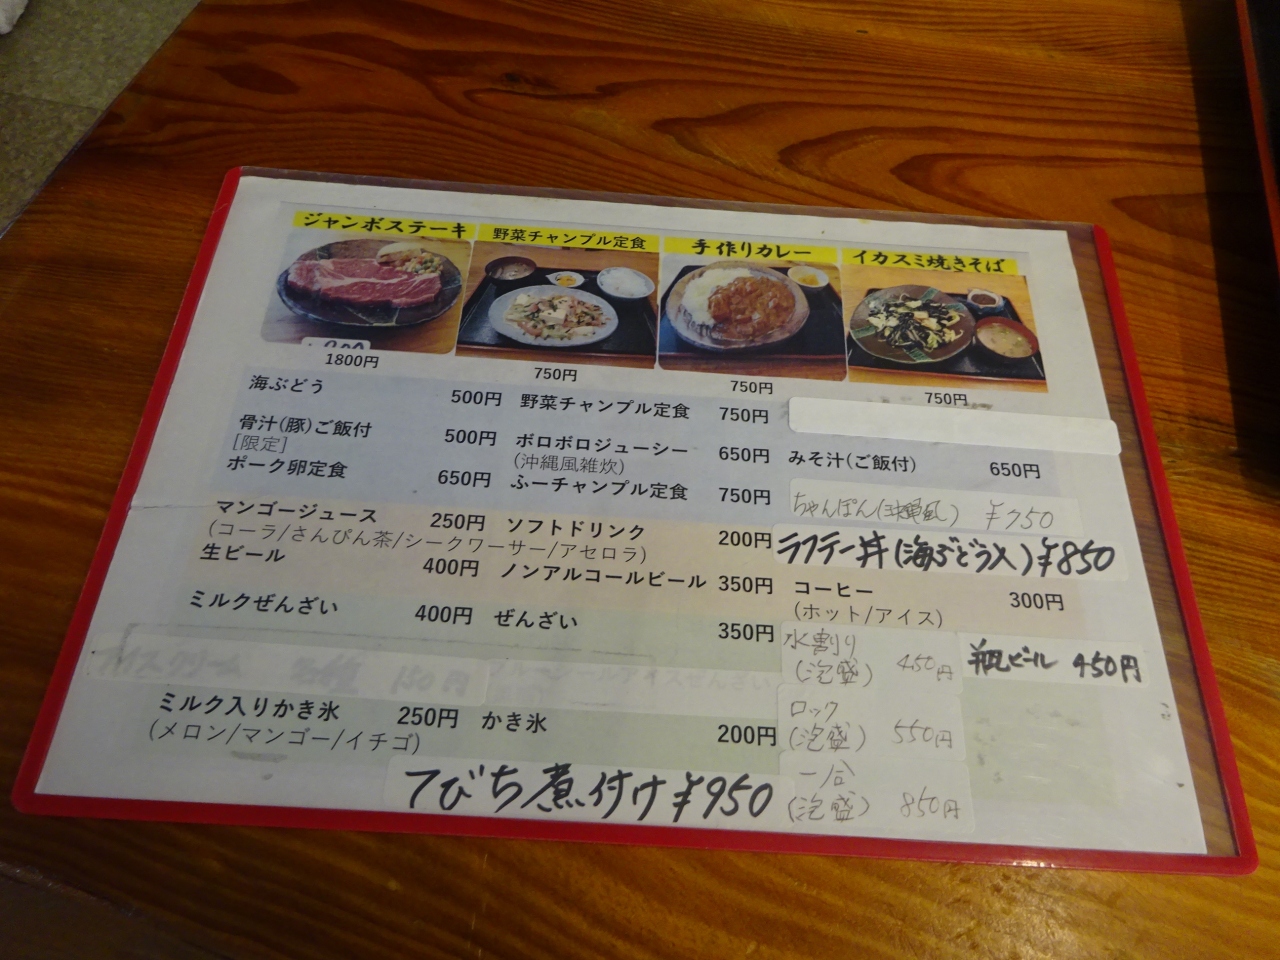 ジャンボステーキ 野菜チャンプル定食 手作りカレー イカスミ焼きそば
1800円 750円 750円 750円
海ぶどう 500円 野菜チャンプル定食 750円
骨汁(豚)ご飯付 500円 ボロボロジューシー 650円 みそ汁(ご飯付) 650円
[限定] (沖縄風雑炊)
ポーク卵定食 650円 ふーチャンプル定食 750円 ちゃんぽん(沖縄風) ¥750
マンゴージュース 250円 ソフトドリンク 200円 ラフテー丼(海ぶどう入)¥850
(コーラ/さんぴん茶/シークワーサー/アセロラ)
生ビール 400円 ノンアルコールビール 350円 コーヒー 300円
(ホット/アイス)
ミルクぜんざい 400円 ぜんざい 350円 水割り
(泡盛) 450円 瓶ビール 450円
アイスクリーム 150円
ミルク入りかき氷 250円 かき氷 200円 ロック
(メロン/マンゴー/イチゴ) (泡盛) 550円
てびち煮付け¥950 一合
(泡盛) 850円